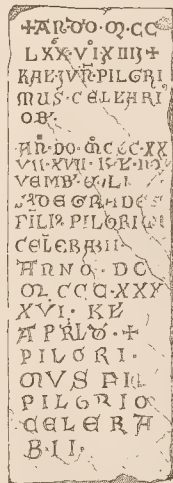 +AN·DO·M·CC
LXX·VI·XIIII+
KAL·JVN·PILGRI
MUS·CELLARI
OB·
AN·DO·MCCC·XX
VII·XVII·KL·NO
VEMB·
FILIA PILGRI
CELERARII·
ANNO·DO
M·CCC·XXX
XVI·KL
APRLO·+
PILGRI·
MVS FIL
PILGRIO
CELERA
RII·